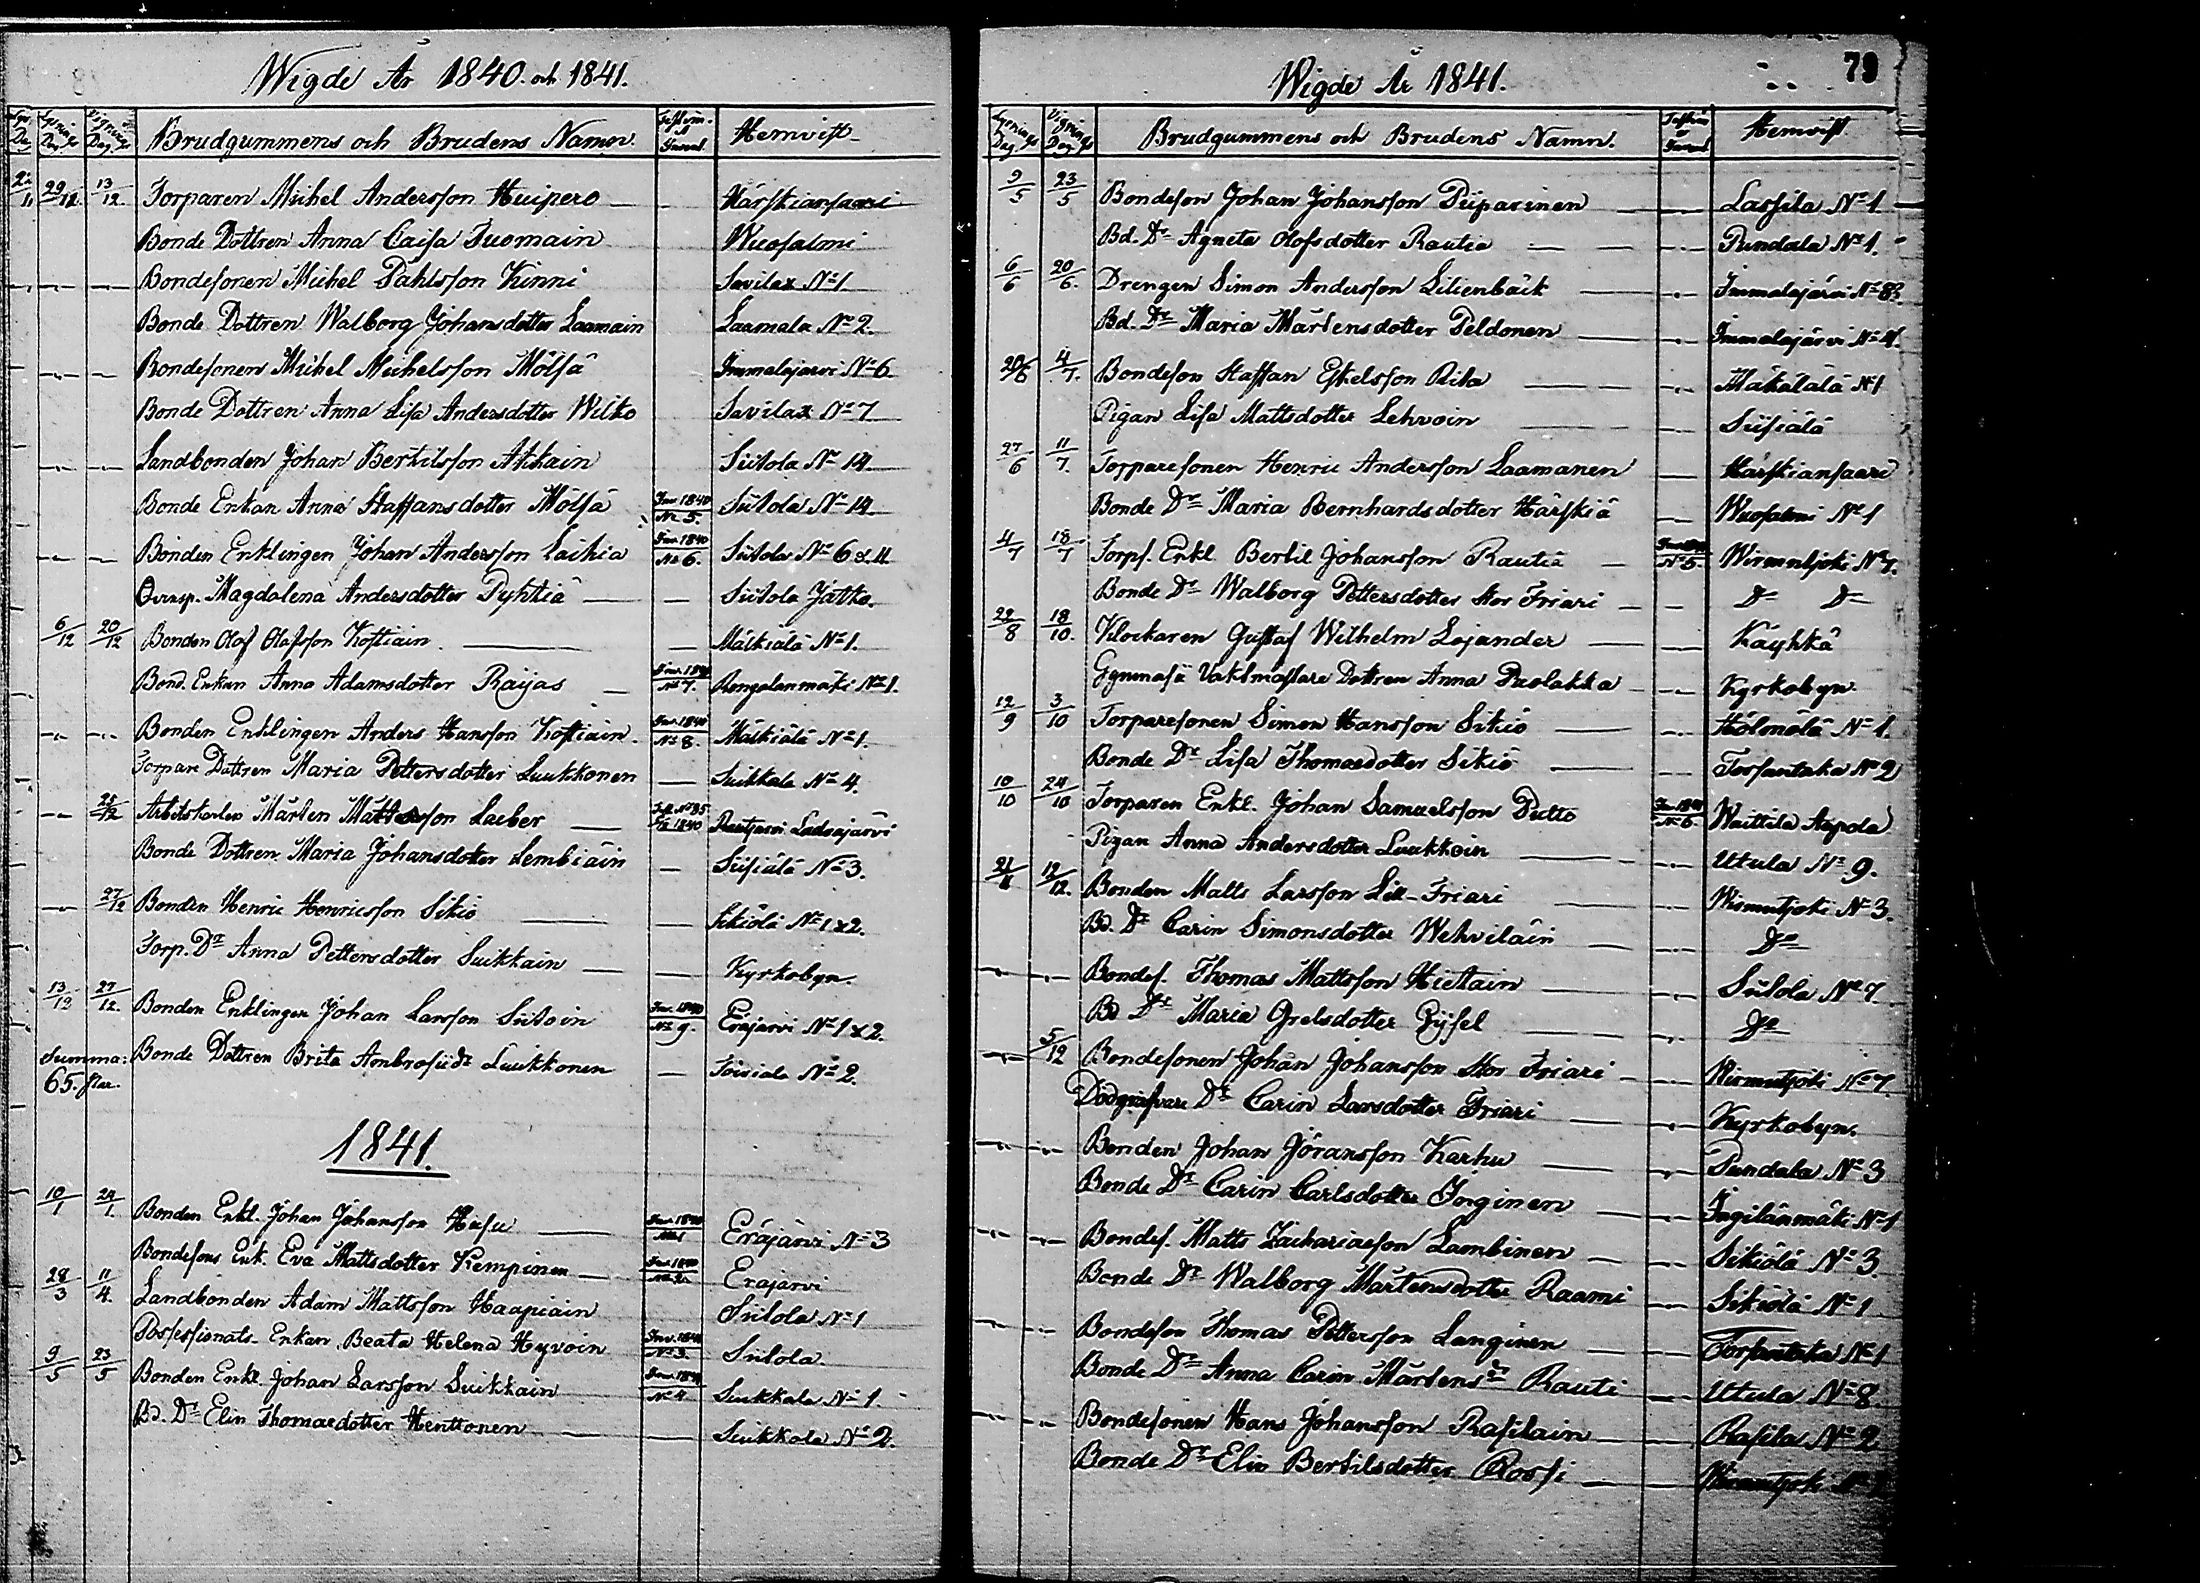 Wigde År 1840. och 1841.
Brudgummens och Brudens Namn. Hemvist
29/11 13/12 Torparen Michel Andersson Huipero — Härskiansaari
Bonde Dottren Anna Caisa Tuomain Wuosalmi
Bondesonen Michel Påhlsson Kinni Savilax No 1
Bonde Dottren Walborg Johansdotter Laamain Laamala No 2.
Bondesonen Michel Michelsson Mölsä Immalajärvi No 6.
Bonde Dottren Anna Lisa Andersdotter Wilko Savilax No 7
Landbonden Johan Bertilsson Ahkain Siitola No 14.
Bonde Enkan Anna Staffansdotter Mölsä Inv. 1840 No 5. Siitola No 14.
Bonden Enklingen Johan Andersson Laihia Inv. 1840 No 6. Siitola No 6 &
Magdalena Andersdotter Pyhtiä — Siitola Jätko.
6/12 20/12 Bonden Olof Olofsson Kostiain. — Mälkiälä No 1.
Bond. Enkan Anna Adamsdotter Raijas — Inv. 1840 No 7. No 1.
Bonden Enklingen Anders Hansson Kostiain. Inv. 1840 No 8. Mälkiälä No 1.
Torpare Dottren Maria Pettersdotter Luukkonen — Suikkala No 4.
Arbetskarlen Mårten Mattsson Laeber — 1840 Rautjärvi
Bonde Dottren Maria Johansdotter Lembiäin — Siisiälä No 3.
27/12 Bonden Henric Henricsson Sikiö — Sikiölä No 1 & 2.
Torp. Dr Anna Pettersdotter Suikkain — Kyrkobyn.
13/12 27/12. Bonden Enklingen Johan Larsson Siitoin Inv. 1840 No 9. Eräjärvi No 1 & 2.
Summa: Bonde Dottren Brita Ambrosiidr Luukkonen — No 2.
65. par.
1841.
10/1 24/1. Bonden Enkl. Johan Johansson Hasu — Eräjärvi No 3
Bondesons Enk. Eva Mattsdotter Kempinen — Eräjärvi
28/3 11/4. Landbonden Adam Mattsson Haapiain Siitola No 1
Possessionats Enkan Beata Helena Hyvoin No 3. Siitola
9/5 23/5 Bonden Enkl. Johan Larsson Suikkain No 4 Suikkala No 1
Bd. Dr Elin Thomasdotter Henttonen — Suikkala No 2.
Wigde År 1841. 79
Brudgummens och Brudens Namn. Hemvist
9/5 23/5 Bondeson Johan Johansson Piiparinen — Lassila No 1
Bd. Dr Agneta Olofsdotter Rautia — Pundala No 1.
6/6 20/6. Drengen Simon Andersson Lilienbäck — Immalajärvi No 8
Bd. Dr Maria Mårtensdotter Peldonen — Immalajärvi No 4.
20/6 4/7. Bondeson Staffan Eskelsson Rita — No 1
Pigan Lisa Mattsdotter Lehvoin — Siisiälä
27/6 11/7. Torparesonen Henric Andersson Laamanen — Härskiansaari
Bonde Dr Maria Bernhardsdotter Härskiä — Wuosalmi No 1
4/7 18/7 Torps. Enkl. Bertil Johansson Rautia — No 5. Wirmutjoki No 7.
Bonde Dr Walborg Pettersdotter Stor Friari — Do Do
22/8 18/10. Klockaren Gustaf Wilhelm Lojander — Käyhkä
Gymnasii Vaktmästare Dottren Anna Puolakka — Kyrkobyn.
12/9 3/10 Torparesonen Simon Hansson Sikiö — Hölmölä No 1.
Bonde Dr Lisa Thomasdotter Sikiö — Torsantaka No 2
10/10 24/10 Torparen Enkl. Johan Samuelsson Putto No 6. Waittila
Pigan Anna Andersdotter Luukkoin — Utula No 9.
21/11 12/12. Bonden Matts Larsson Lill-Friari — Wirmutjoki No 3.
Bd. Dr Carin Simonsdotter Wehviläin — Do
Bondes. Thomas Mattsson Hietain — Siitola No 7
Bd Dr Maria Grelsdotter Pysel — Do
5/12 Bondesonen Johan Johansson Stor Friari — Wirmutjoki No 7.
Dödgräfvare Dr Carin Larsdotter Friari — Kyrkobyn.
Bonden Johan Jöransson Karhu — Pundala No 3
Bonde Dr Carin Carlsdotter Inginen — Ingilänmäki No 1
Bondes. Matts Zachariaeson Lambinen — Sikiölä No 3.
Bonde Dr Walborg Mårtensdotter Raami — Sikiölä No 1
Bondeson Thomas Pettersson Langinen — Torsantaka No 1
Bonde Dr Anna Carin Mårtensdr Rauti — Utula No 8.
Bondesonen Hans Johansson Rasilain — Rasila No 2
Bonde Dr Elin Bertilsdotter Rossi — Wirmutjoki